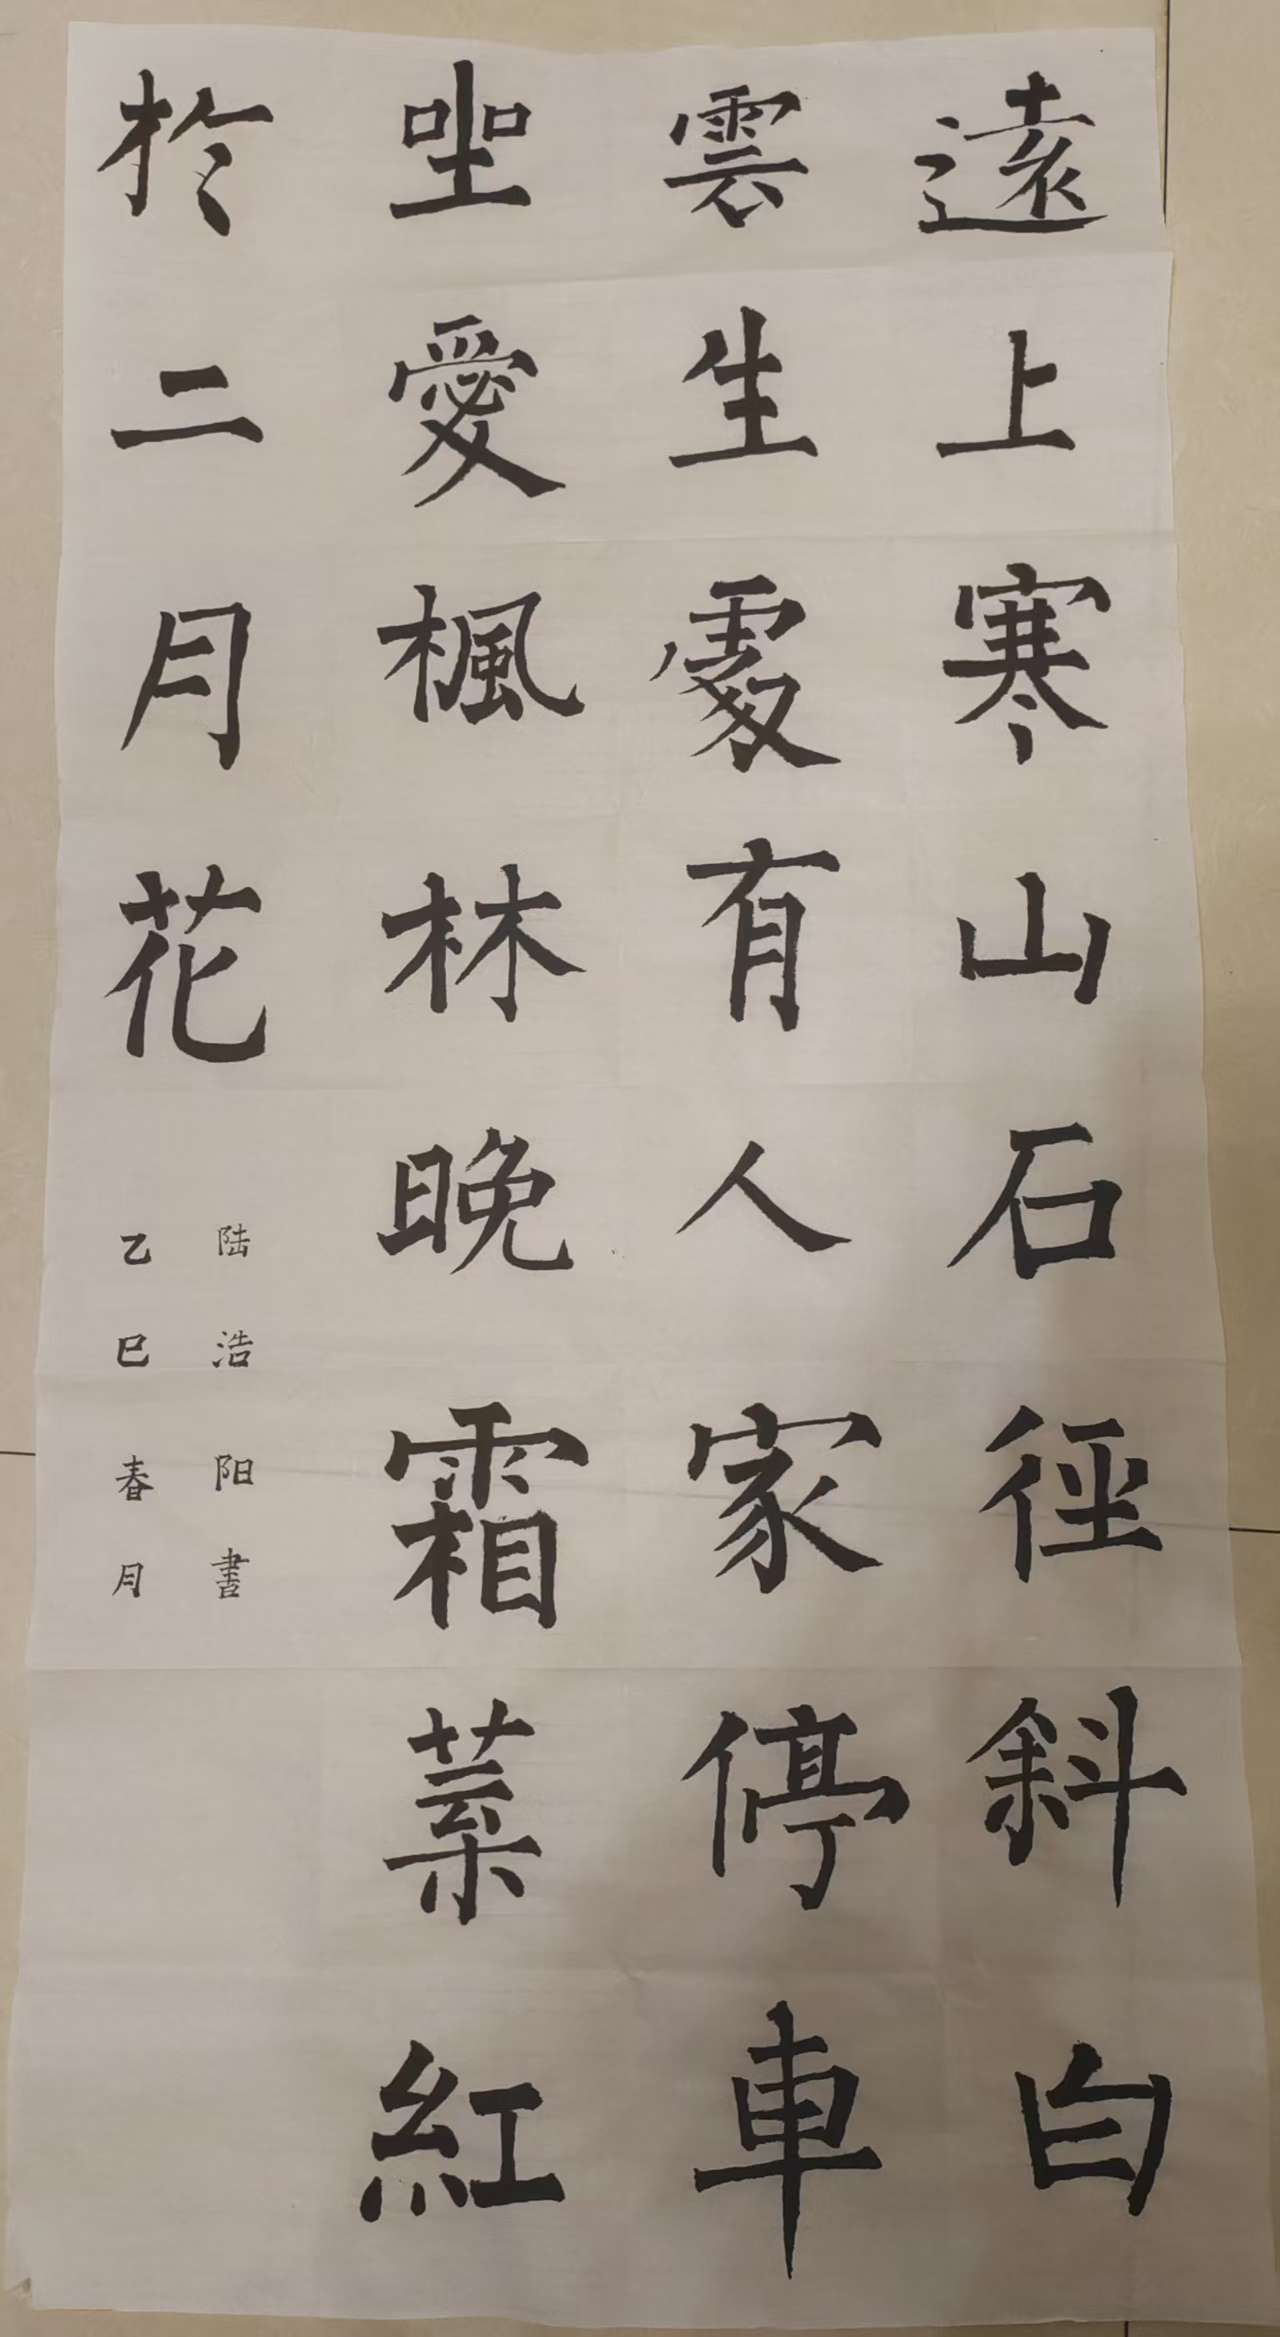 遠上寒山石徑斜白
雲生處有人家停車
坐愛楓林晚霜葉紅
於二月花
陆浩阳書
乙巳春月